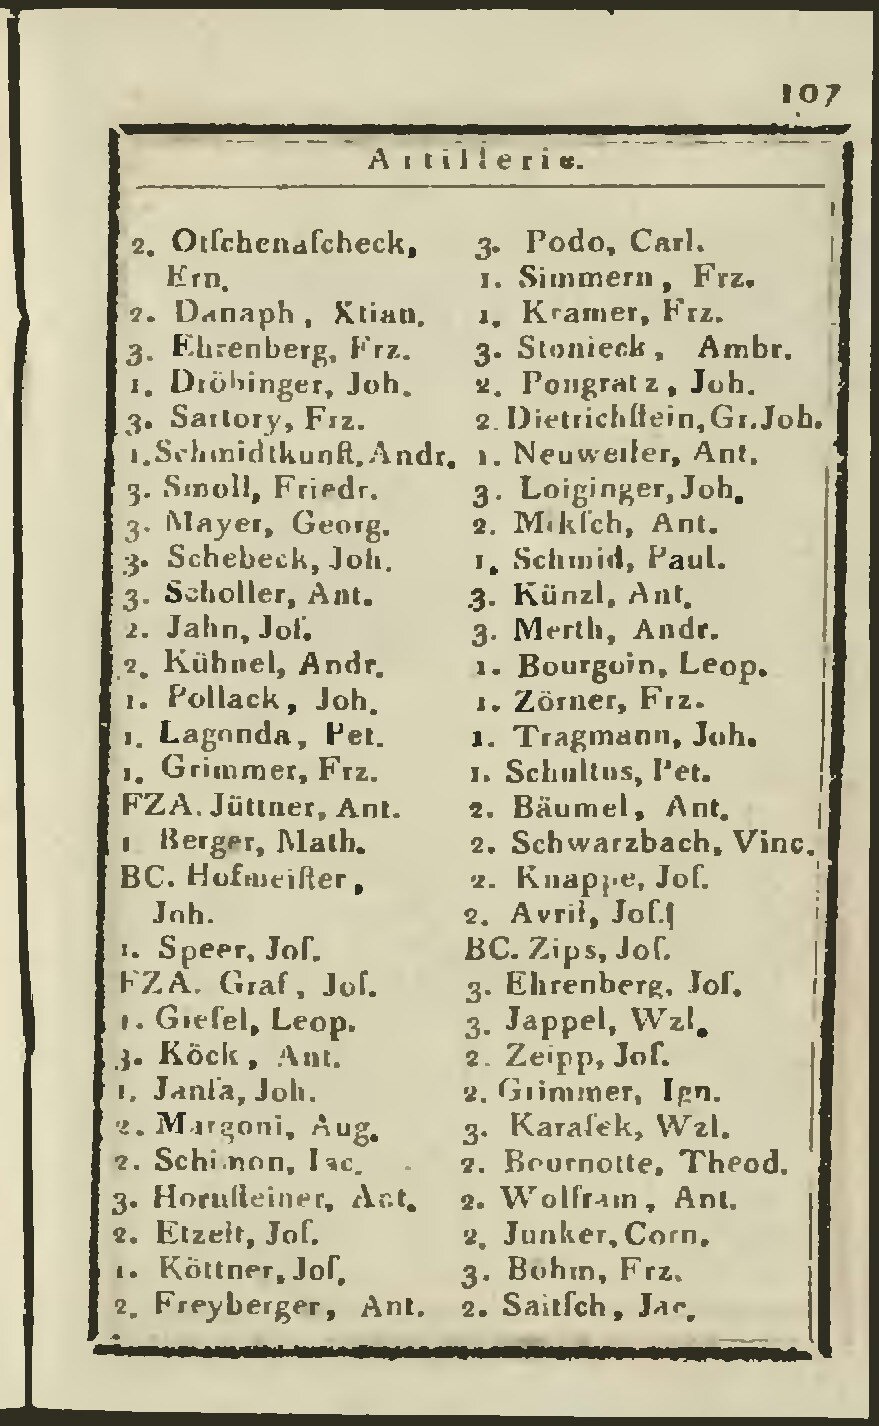 107
Artillerie.
2. Otſchenaſcheck,
Ern.
2. Danaph, Xtian.
3. Ehrenberg, Frz.
1. Dröhinger, Joh.
3. Sartory, Frz.
1. Schmidtkunſt, Andr.
3. Smoll, Friedr.
3. Mayer, Georg.
3. Schebeck, Joh.
3. Scholler, Ant.
2. Jahn, Joſ.
2. Kühnel, Andr.
1. Pollack, Joh.
1. Lagonda, Pet.
1. Grimmer, Frz.
FZA. Jüttner, Ant.
1 Berger, Math.
BC. Hofmeiſter,
Joh.
1. Speer, Joſ.
FZA. Graf, Joſ.
1. Gieſel, Leop.
3. Köck, Ant.
1. Janſa, Joh.
2. Margoni, Aug.
2. Schimon, Iac.
3. Hornſteiner, Ant.
2. Etzelt, Joſ.
1. Köttner, Joſ.
2. Freyberger, Ant.
3. Podo, Carl.
1. Simmern, Frz.
1. Kramer, Frz.
3. Stonieck, Ambr.
2. Pongratz, Joh.
2. Dietrichſtein, Gr. Joh.
1. Neuweiler, Ant.
3. Loiginger, Joh.
2. Mikſch, Ant.
1. Schmid, Paul.
3. Künzl, Ant.
3. Merth, Andr.
1. Bourgoin, Leop.
1. Zörner, Frz.
1. Tragmann, Joh.
1. Schultus, Pet.
2. Bäumel, Ant.
2. Schwarzbach, Vinc.
2. Knappe, Joſ.
2. Avril, Joſ.
BC. Zips, Joſ.
3. Ehrenberg, Joſ.
3. Jappel, Wzl.
2. Zeipp, Joſ.
2. Grimmer, Ign.
3. Karaſek, Wzl.
2. Bournotte, Theod.
2. Wolfram, Ant.
2. Junker, Corn.
3. Bohm, Frz.
2. Saitſch, Jac.